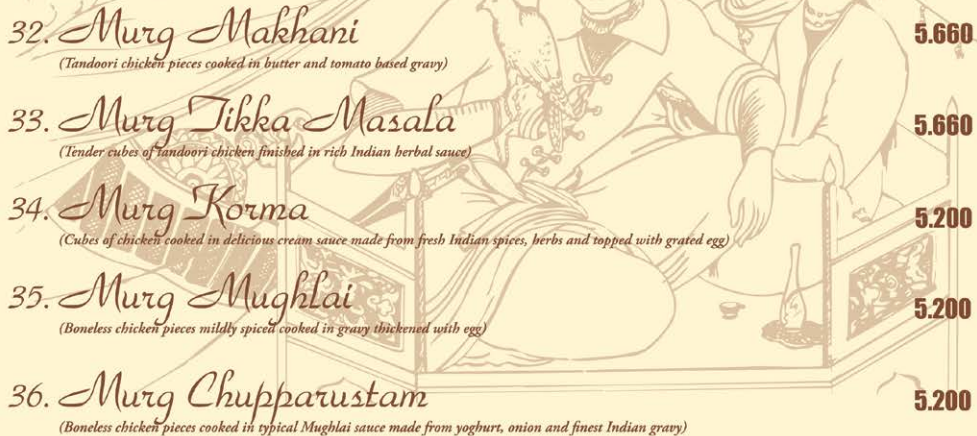 32. Murg Makhani 5.660
(Tandoori chicken pieces cooked in butter and tomato based gravy)
33. Murg Tikka Masala 5.660
(Tender cubes of tandoori chicken finished in rich Indian herbal sauce)
34. Murg Korma 5.200
(Cubes of chicken cooked in delicious cream sauce made from fresh Indian spices, herbs and topped with grated egg)
35. Murg Mughlai 5.200
(Boneless chicken pieces mildly spiced cooked in gravy thickened with egg)
36. Murg Chupparustam 5.200
(Boneless chicken pieces cooked in typical Mughlai sauce made from yoghurt, onion and finest Indian gravy)